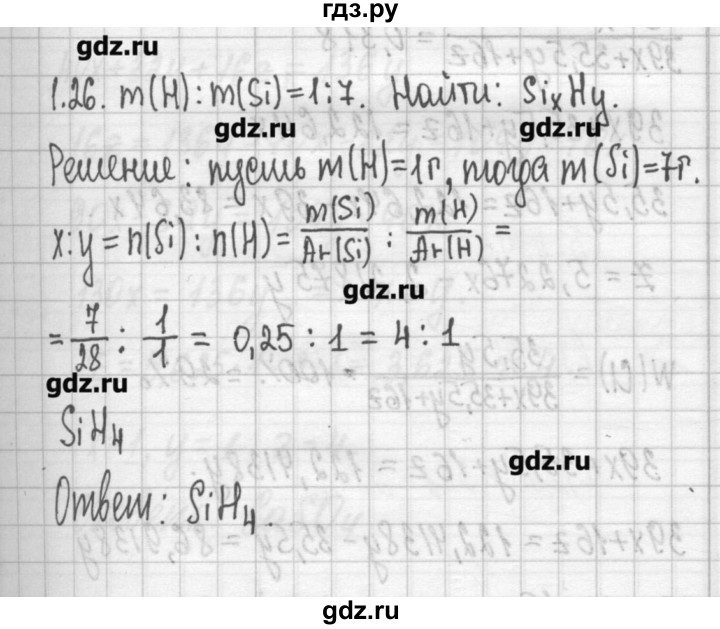 гдз.ру
gdz.ru
1.26. m(H) : m(Si) = 1 : 7. Найти: SixHy.
gdz.ru gdz.ru
Решение: пусть m(H) = 1г, тогда m(Si) = 7г.
x : y = n(Si) : n(H) = m(Si)/Ar(Si) : m(H)/Ar(H) =
gdz.ru
= 7/28 : 1/1 = 0,25 : 1 = 4 : 1
gdz.ru
SiH4
gdz.ru
Ответ: SiH4.
gdz.ru